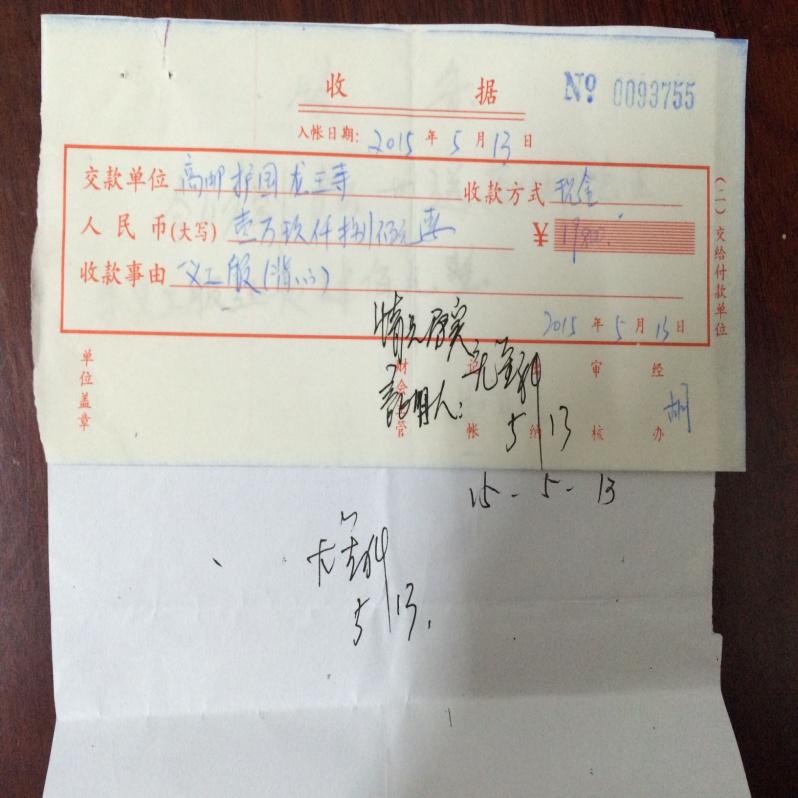 收 据 Nº 0093755
入帐日期: 2015 年 5 月 13 日
交款单位 高邮护国龙王寺 收款方式 现金
人民币(大写) 壹万玖仟捌佰元整 ¥ 19800.
收款事由 义工服
2015 年 5 月 13 日
(二)交给付款单位
情况属实
证明人:
5/13
单位盖章 财会主管 记帐 出纳 审核 经办
15-5-13
5/13.